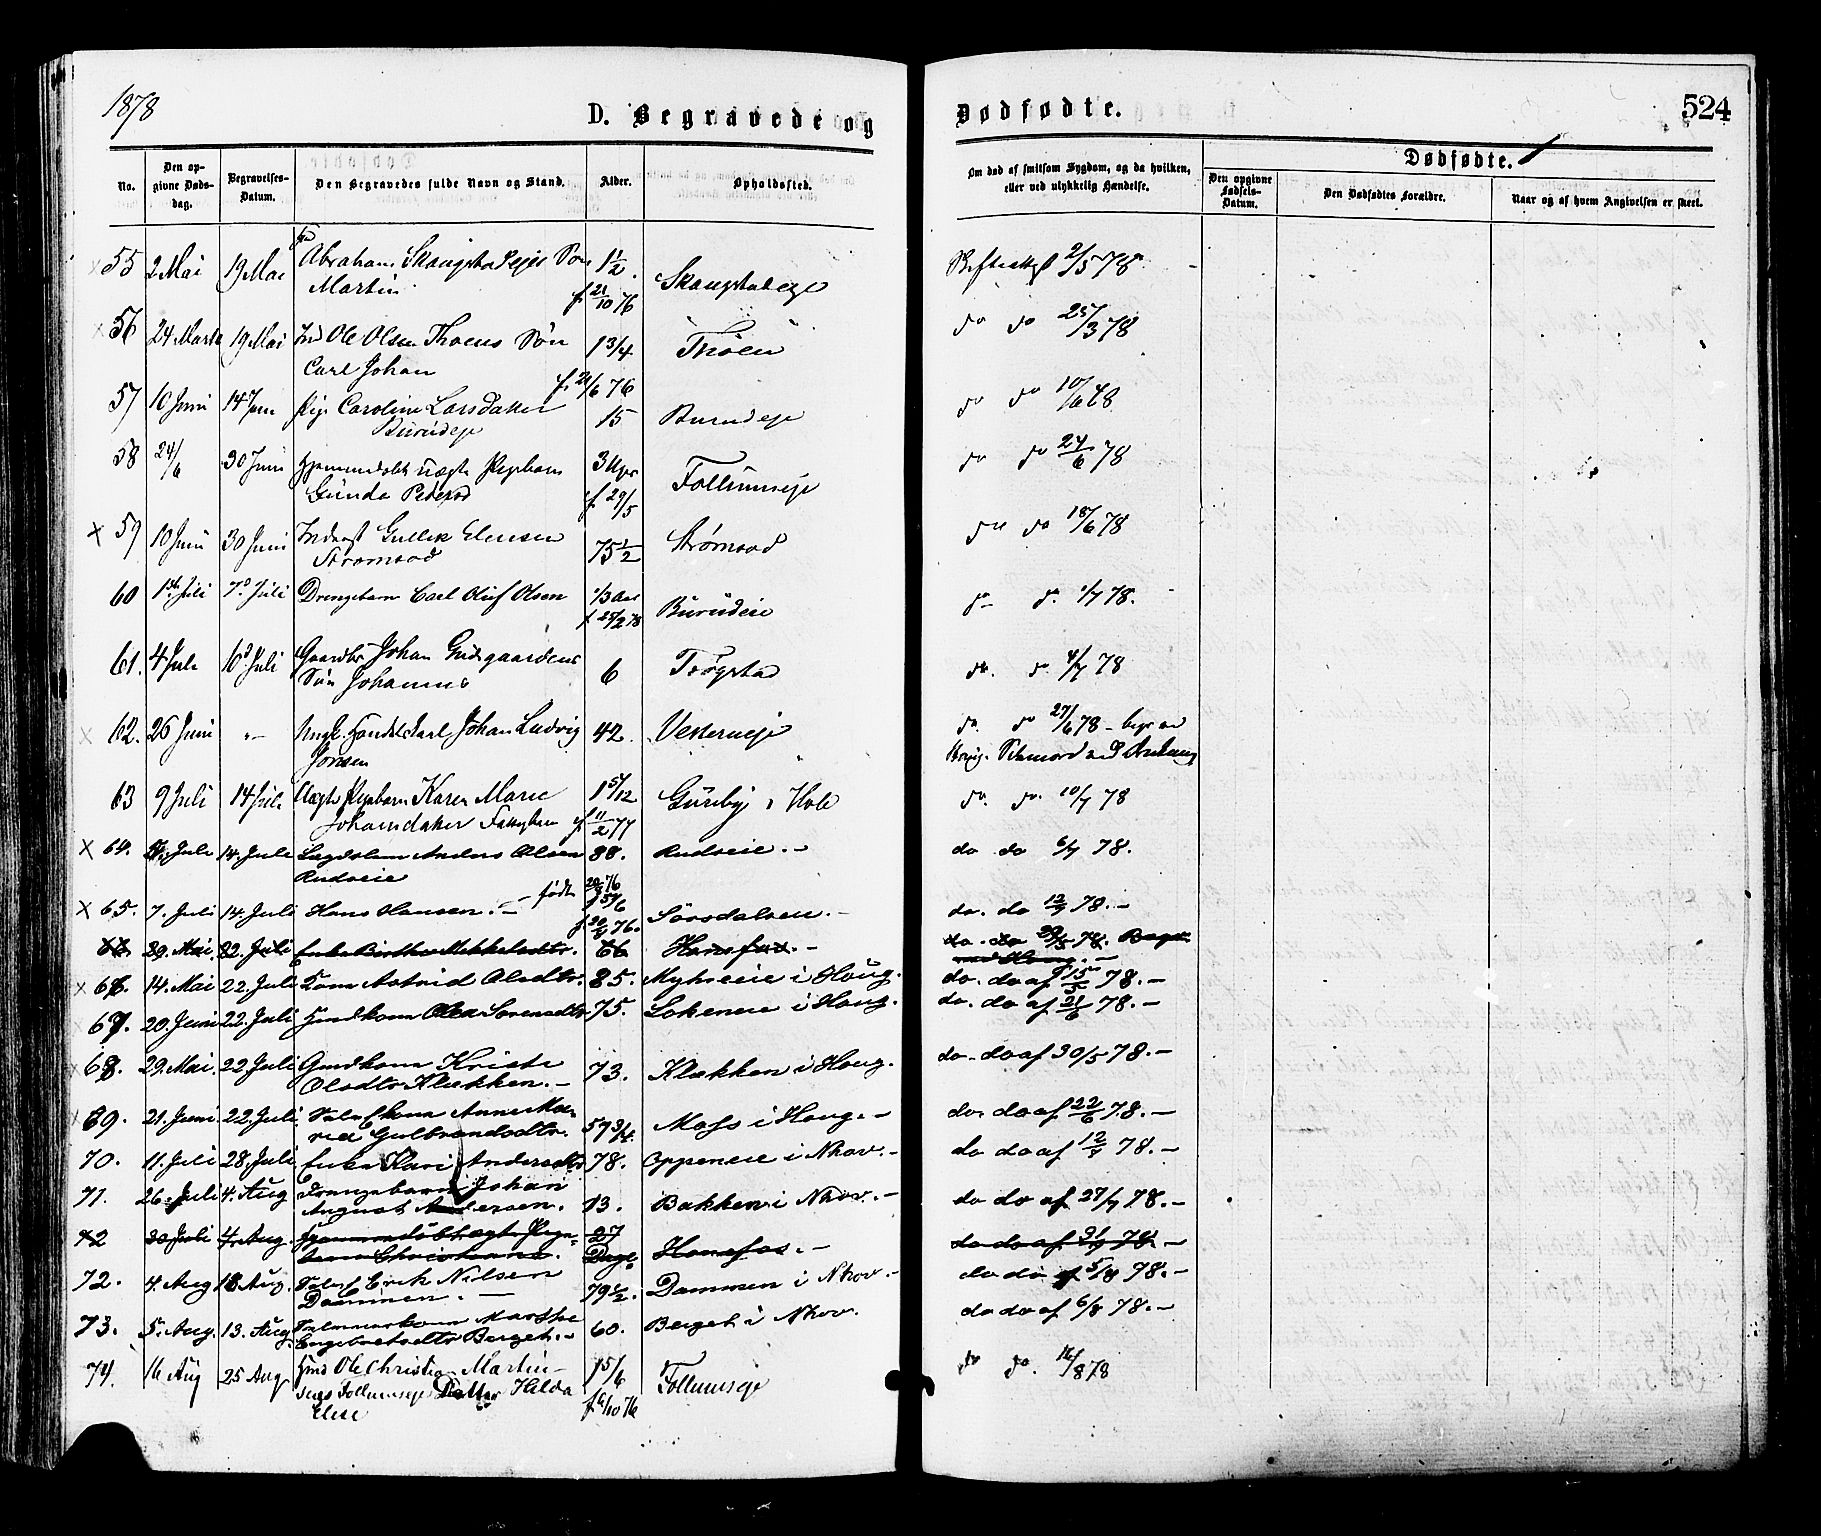 1878
D. Begravede og
Dødfødte.
524
No.
Den opgivne Dødsdag.
Begravelses-Datum.
Den Begravedes fulde Navn og Stand.
Alder.
Opholdssted.
Om død af smitsom Sygdom, og da hvilken, eller ved ulykkelig Hændelse.
Dødfødte.
Den opgivne Fødsels-Datum.
Den Dødfødtes Forældre.
Naar og af hvem Angivelsen er skeet.
55 2 Mai 19 Mai Abraham Søn 1 1/2 2/5 78
Martin f. 21/10 76
56 24 Marts 19 Mai Ind Ole Olsen Thoens Søn 1 3/4 Thoen do do 25/3 78
Carl Johan f. 21/6 76
57 10 Juni 14 Juni Pige Caroline Larsdatter 15 Burudeje do do 10/6 78
Burudeje
58 24/6 30 Juni uægte Pigebarn 3 Uger Follumseje do do 24/6 78
Gunda Pedersd f. 29/5
59 10 Juni 30 Juni Inderst Gullik Elensen 75 1/2 Strømsod do do 18/6 78
Stromsod
60 1ste Juli 7de Juli Drengebarn Carl Oluf Olsen 1/3 Aar Burudeie do do 1/7 78.
f 25/2 78
61. 4 Juli 10d Juli Gaardbr Johan 6 Trøgstad do. do. 4/7 78
Søn Johannes
62. 26 Juni "- Ungk. Johan Ludvig 42. Vesterneje do. do 27/6 78 -
Jonsen
63 9 Juli 14 Juli Uægte Pigebarn Karen Marie 1 5/12 Gureby i Hole do. do. 10/7 78
Johansdatter f. 11/2 77
64. Juli 14. Juli Lægdslem Anders Olsen 88. Rudseie.- do do 6/7 78.
Rudseie
65. 7. Juli 14. Juli Hans Hansen.- født 76. Sørsdalseie.- do. do 12/7 78.-
29. Mai 22. Juli Enke Birthe Mikkelsdtr. 66 Hønefos.- do. do 78.
66. 14. Mai 22. Juli Kone Astrid Olsdtr. 85. Myhreeie i Houg. do. do af 15/5 78.-
67. 20. Juni 22. Juli Gmdkone Olea Sorensdtr 75. Lokeneie i Houg. do. do af 21/6 78.-
68. 29. Mai. 22 Juli Gmdkone Kristi 73. Klækken i Houg. do. do af 30/5 78.-
Olsdtr Klækken.-
69. 21. Juni 22. Juli Anne Ma- 57 3/4. Moss i Houg.- do. do af 22/6 78.-
rie Gulbrandsdtr.
70. 11. Juli 28. Juli Enke Kari Andersdtr 78. Oppeneie i Nhov.- do do af 12/7 78.-
71. 26. Juli 4. Aug Drengebarn Johan 13. Bakken i Nhov.- do do af 27/7 78.-
August Andersen.
72 30 Juli 4. Aug. Pige- 27 Hønefos.- do do af 31/7 78.-
barn Christiane. Dage
72. 4. Aug 18 Aug. Erik Nilsen 79 1/2. Dammen i Nhov.- do do af 5/8 78.-
Dammen.-
73. 5. Aug. 13. Aug. Marthe 60. Berget i Nhov. do do af 6/8 78.-
Engebretsdtr Berget.-
74. 16 Aug 25 Aug Gmd Ole Christian Martin- 1 5/6 Follumseje do do. 16/8 78
sens Follumseje Datter Hilda
Elise